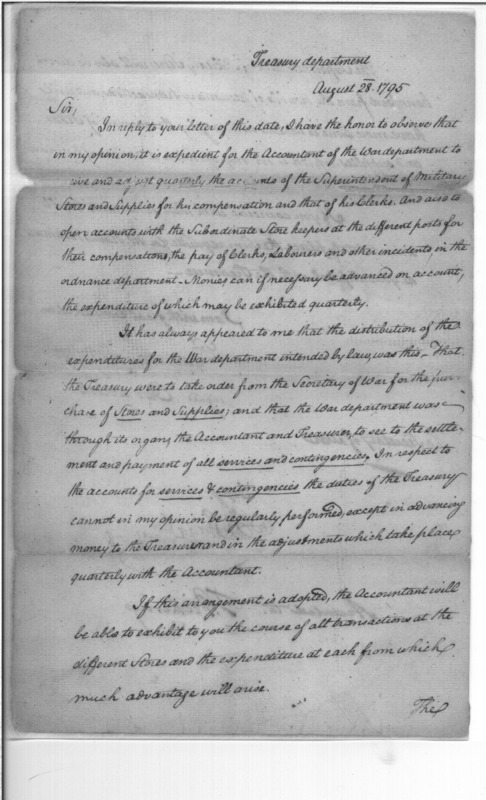 Treasury department
August 28. 1795
Sir,
In reply to your letter of this date, I have the honor to observe that
in my opinion, it is expedient for the Accountant of the War department to
ive and adjust quarterly the accounts of the Superintendent of Military
Stores and Supplies for his compensation and that of his Clerks. And also to
open accounts with the Subordinate Store keepers at the different posts for
their compensations, the pay of Clerks, Labourers and other incidents in the
ordnance department - Monies can if necessary be advanced on account,
the expenditure of which may be exhibited quarterly.
It has always appeared to me that the distribution of the
expenditures for the War department intended by law, was this, - That
the Treasury were to take order from the Secretary of War for the pur-
chase of Stores and Supplies; and that the War department was
through its organs, the Accountant and Treasurer, to see to the settle-
ment and payment of all services and contingencies. In respect to
the accounts for services & contingencies the duties of the Treasury
cannot in my opinion be regularly performed, except in advancing
money to the Treasurer and in the adjustments which take place
quarterly with the Accountant.
If this arrangement is adopted, the Accountant will
be able to exhibit to you the course of all transactions at the
different Stores and the expenditure at each from which
much advantage will arise.
The